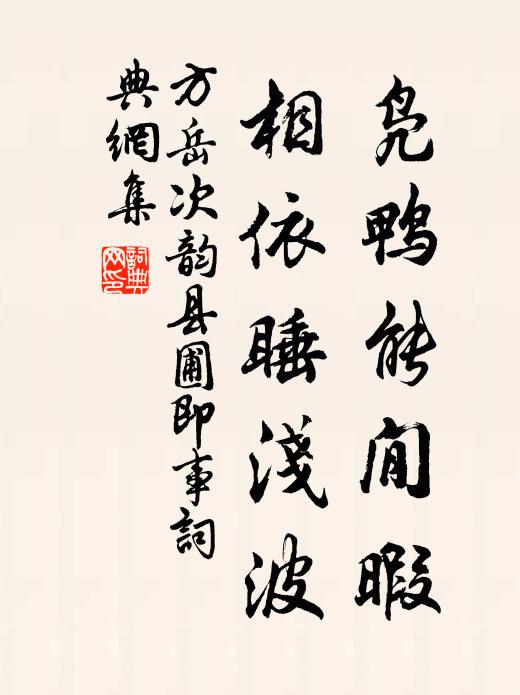 凫鸭能闲暇
相依睡淺波
方岳次韵县圃即事詞
典網集
詞典網印